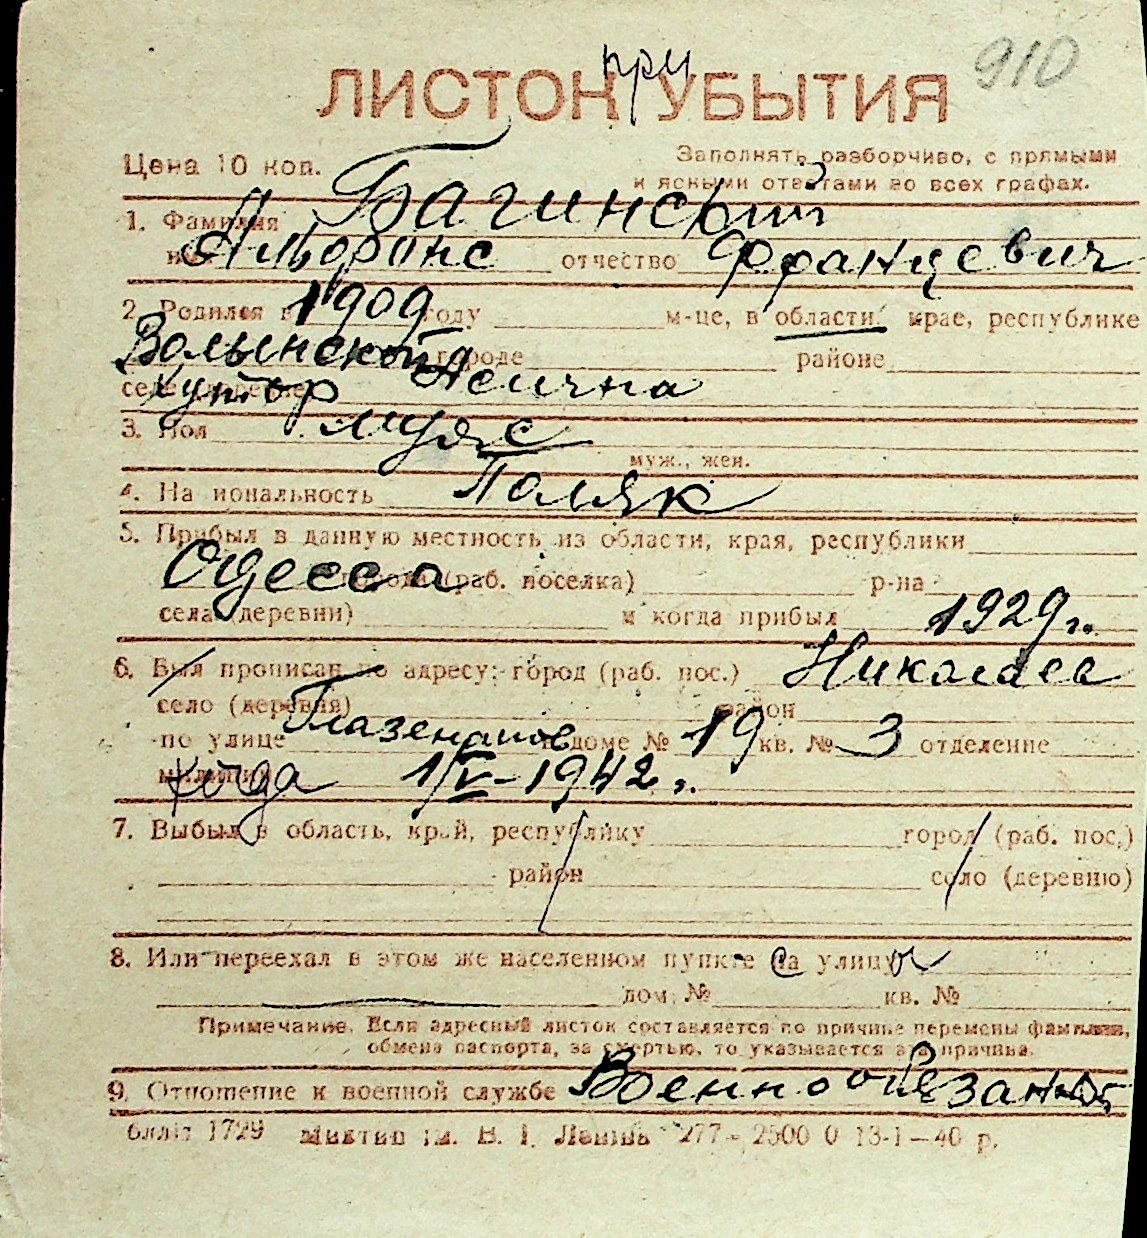 при
910
ЛИСТОК УБЫТИЯ
Цена 10 коп.
Заполнять разборчиво, с прямыми
и ясными ответами во всех графах.
1. Фамилия Багинский
Альфонс отчество Францевич
2. Родился в 1909 году м-це, в области, крае, республике
Волынской городе районе
хутор
3. Пол муж
муж., жен.
4. Национальность Поляк
5. Прибыл в данную местность из области, края, республики
Одесса города (раб. поселка) р-на
села (деревни) и когда прибыл 1929 г.
6. Был прописан по адресу: город (раб. пос.) Николаев
село (деревня) район
по улице доме № 19 кв. № 3 отделение
милиции когда 1/V-1942 г.
7. Выбыл в область, край, республику город (раб. пос.)
район село (деревню)
8. Или переехал в этом же населенном пункте на улицу
дом № кв. №
Примечание. Если адресный листок составляется по причине перемены фамилии,
обмена паспорта, за смертью, то указывается эта причина.
9. Отношение к военной службе Военнообязанный
1729 277 - 2500 0 13-1-40 р.